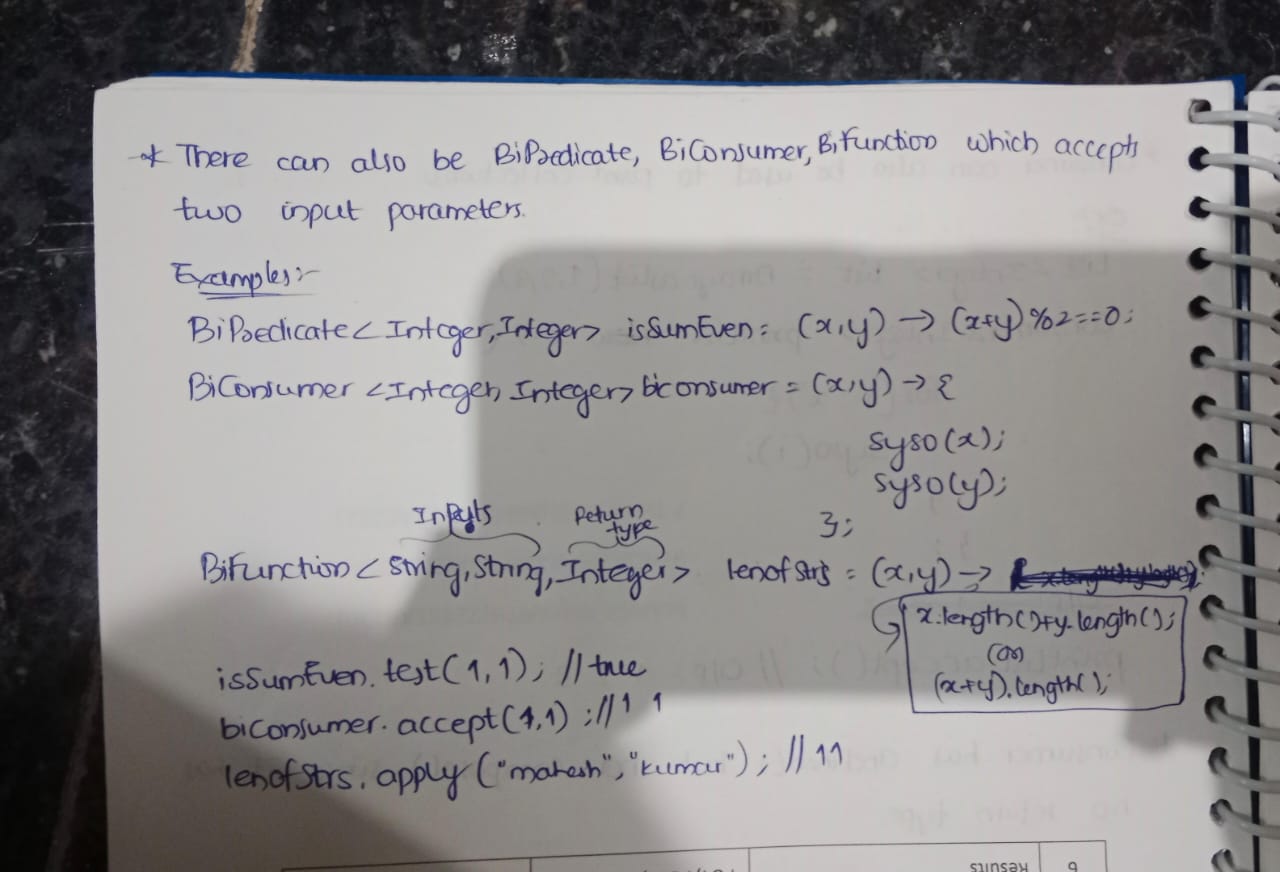 * There can also be BiPredicate, BiConsumer, BiFunction which accepts
two input parameters.
Examples:-
BiPredicate<Integer, Integer> isSumEven = (x,y) -> (x+y)%2==0;
BiConsumer <Integer, Integer> biconsumer = (x,y) -> {
syso(x);
syso(y);
};
Inputs Return type
BiFunction < String, String, Integer> lenofStrs = (x,y) ->
x.length()+y.length();
(or)
(x+y).length();
isSumEven.test(1,1); //true
biconsumer.accept(1,1); //1 1
lenofStrs.apply("mahesh","kumar"); //11
Results
6